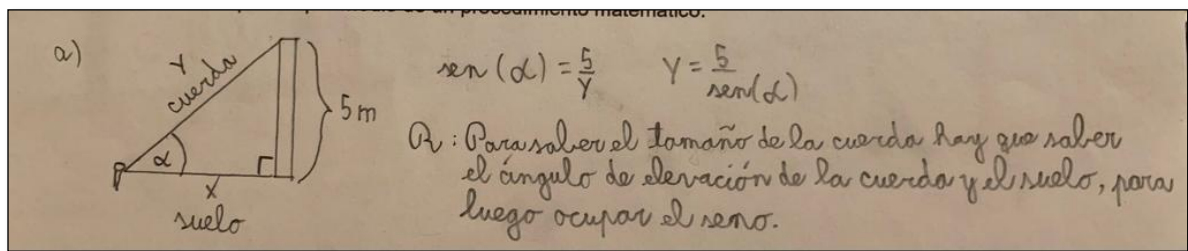 de un procedimiento matemático.
a)
Y
cuerda
5 m
α
x
suelo
sen (α) = 5/Y    Y = 5/sen(α)
R : Para saber el tamaño de la cuerda hay que saber
el ángulo de elevación de la cuerda y el suelo, para
luego ocupar el seno.